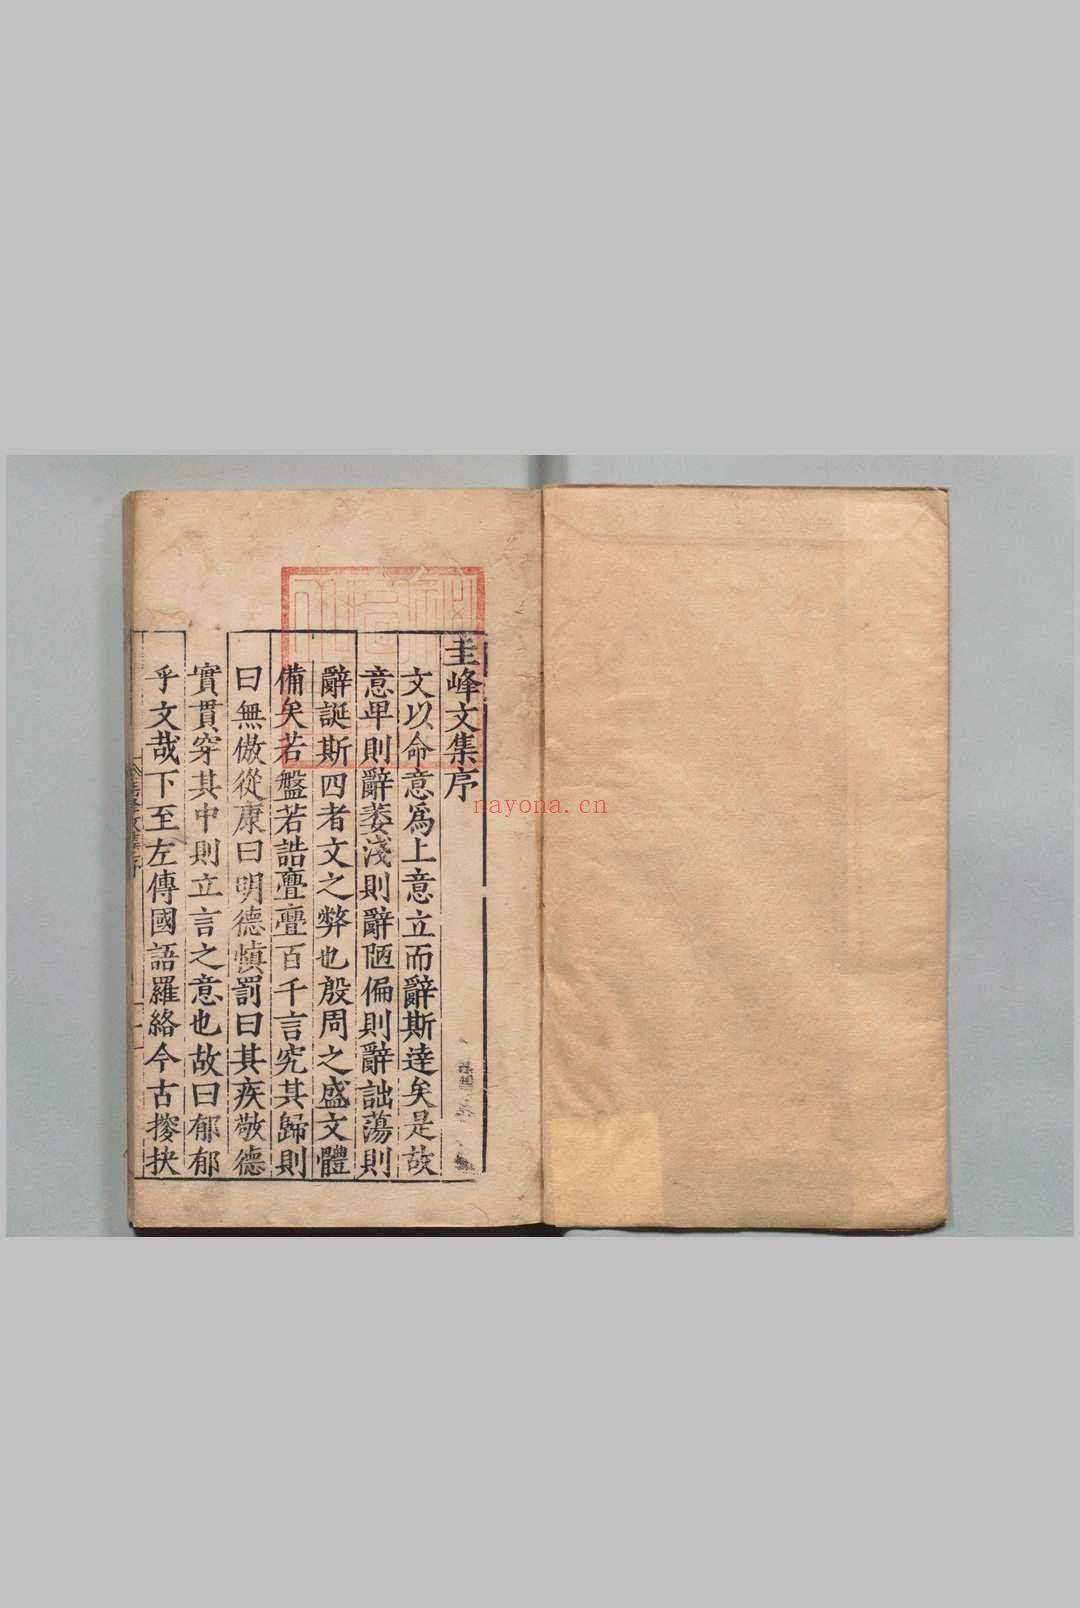 圭峰文集序
文以命意爲上意立而辭斯達矣是故
意卑則辭萎淺則辭陋偏則辭詘蕩則
辭誕斯四者文之弊也殷周之盛文體
備矣若盤若誥亹亹百千言究其歸則
曰無傲從康曰明德慎罰曰其疾敬德
實貫穿其中則立言之意也故曰郁郁
乎文哉下至左傳國語羅絡今古摉抉
nayona.cn